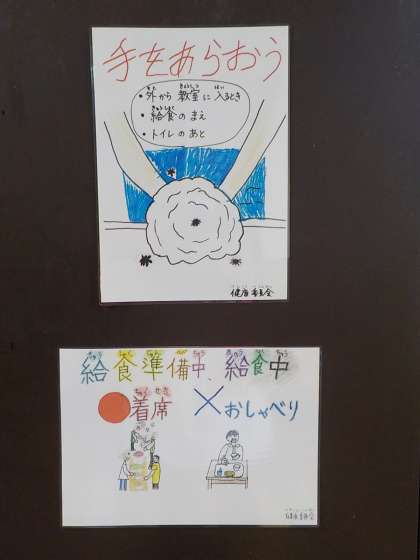 手をあらおう
・外から教室に入るとき
・給食のまえ
・トイレのあと
健康委員会
給食準備中、給食中
●着席 ×おしゃべり
健康委員会